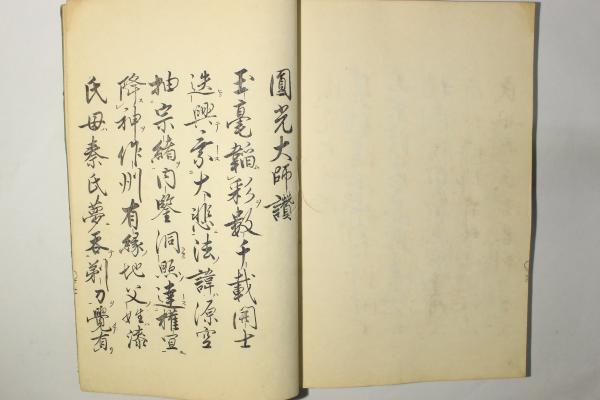 圓光大師讚
玉毫韜彩數千載開士
迭興示大悲法諱源空
抽宗緒内鑒洞照達權宜
降神作州有緣地父姓漆
氏母秦氏夢吞剃刀覺有